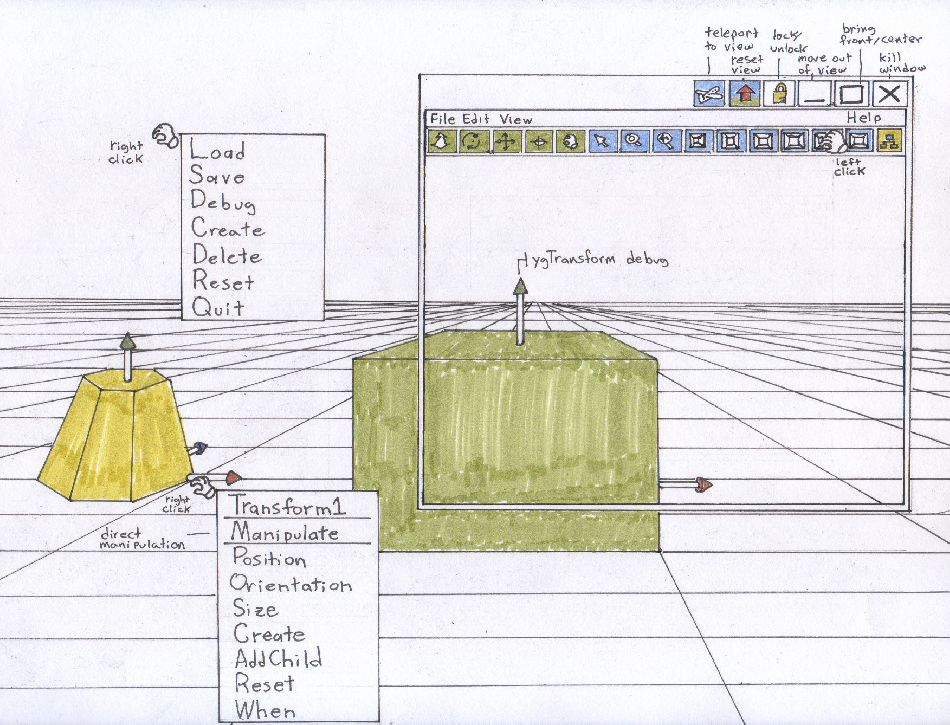 teleport
to view
reset
view
lock/
unlock
move out
of view
bring
front/center
kill
window
File Edit View Help
left
click
right
click
Load
Save
Debug
Create
Delete
Reset
Quit
HygTransform debug
right
click
direct
manipulation
Transform1
Manipulate
Position
Orientation
Size
Create
AddChild
Reset
When